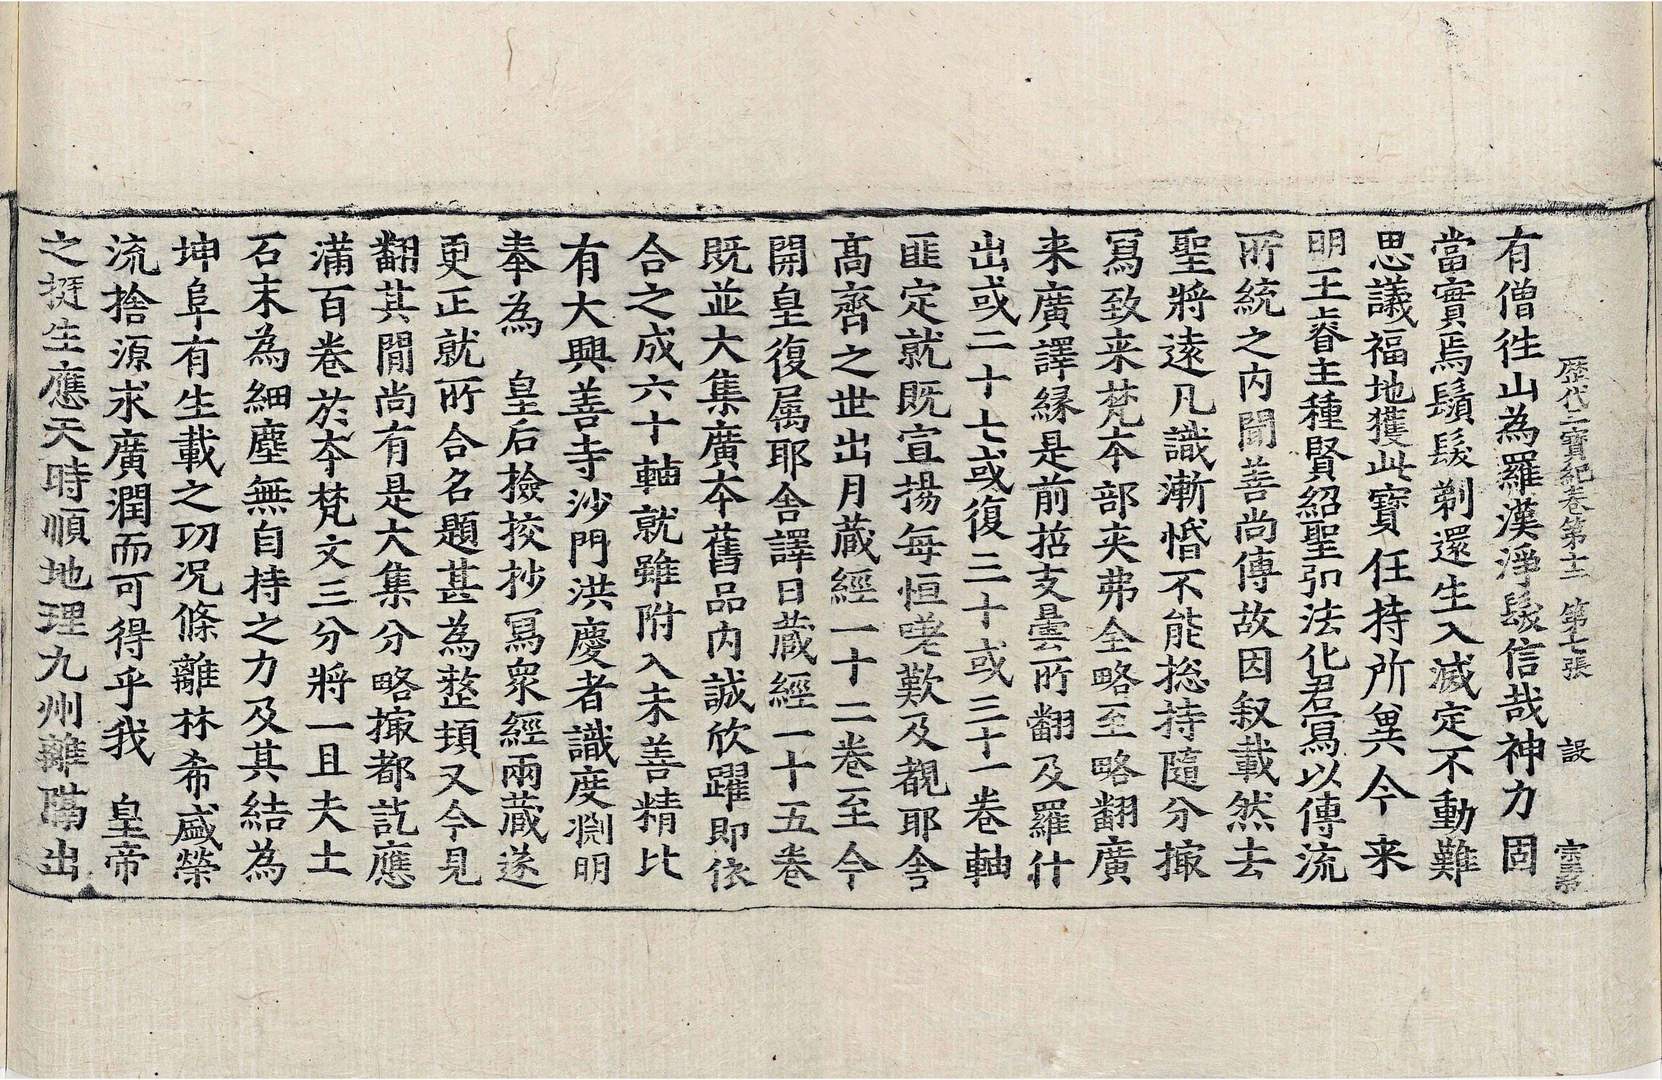 歷代三寶紀卷第十二 第七張 設 宗
有僧徃山為羅漢淨髮信哉神力固
當實焉鬚髮剃還生入滅定不動難
思議福地獲此寶任持所異今来
明王睿主種賢紹聖弘法化君寫以傳流
所統之內聞善尚傳故因叙載然去
聖將遠凡識漸惛不能捴持隨分撮
寫致来梵本部夾弗全略至略翻廣
来廣譯緣是前招支曇所翻及羅什
出或二十七或復三十或三十一卷軸
匪定就既宣揚每恒嗟歎及覩耶舍
高齊之世出月藏經一十二卷至今
開皇復屬耶舍譯日藏經一十五卷
既並大集廣本舊品內誠欣躍即依
合之成六十軸就雖附入未善精比
有大興善寺沙門洪慶者識度淵明
奉為　皇后撿挍抄寫衆經兩藏遂
更正就所合名題甚為整頓又今見
翻其閒尚有是大集分略撮都訖應
滿百卷於本梵文三分將一且夫土
石末為細塵無自持之力及其結為
坤阜有生載之功况條離林希盛榮
流捨源求廣潤而可得乎我　皇帝
之挺生應天時順地理九州離隔出